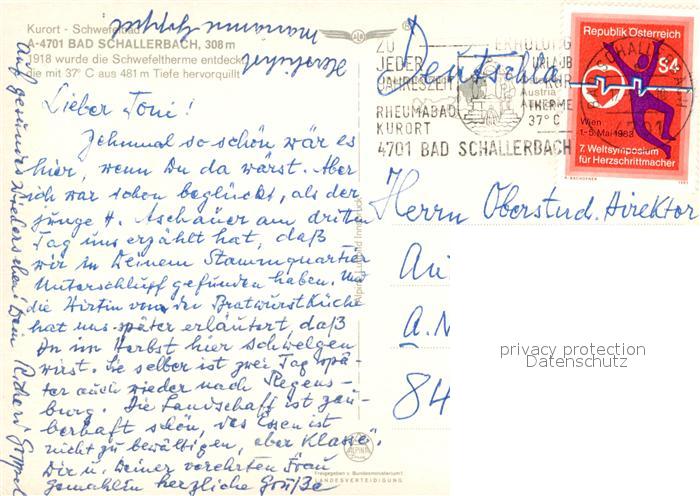 Kurort - Schwefelbad
A-4701 BAD SCHALLERBACH, 308 m
1918 wurde die Schwefeltherme entdeckt,
die mit 37° C aus 481 m Tiefe hervorquillt
Lieber Toni!
Zehnmal so schön wär es
hier, wenn Du da wärst. Aber
ich war schon beglückt, als der
junge H. Aschauer am dritten
Tag uns erzählt hat, daß
wir in Deinem Stammquartier
Unterschlupf gefunden haben. Und
die Wirtin von der Bratwurstküche
hat uns später erläutert, daß
Du im Herbst hier schwelgen
wirst. Sie selber ist zwei Tag spä-
ter auch wieder nach Regens-
burg. Die Landschaft ist zau-
berhaft schön, das Essen ist
nicht zu bewältigen, aber "Klasse".
Dir u. Deiner verehrten Frau
Gemahlin herzliche Grüße
Auf gesundes Wiedersehen! Dein Richard
Herzlichst
Marianne
Alpine Luftbild Innsbruck
ALPINE
Freigegeben v. Bundesministerium f.
LANDESVERTEIDIGUNG
ZU
JEDER
JAHRESZEIT
ERHOLUNG
URLAUB
KUR
Austria
THERME
37° C
RHEUMABAD
KURORT
4701 BAD SCHALLERBACH
BAD SCHALLERBACH
4701
Republik Österreich
S4
Wien
1.-5. Mai 1983
7. Weltsymposium
für Herzschrittmacher
1983
Deutschla
Herrn Oberstud. Direktor
84
privacy protection
Datenschutz